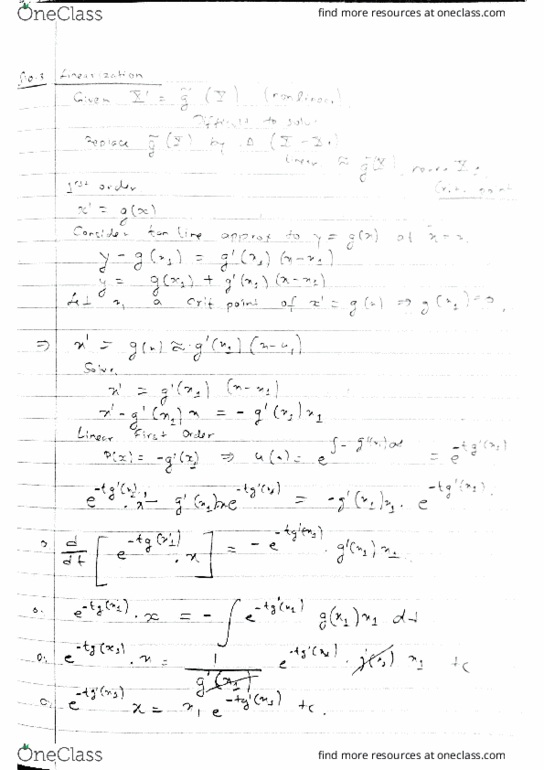 OneClass
find more resources at oneclass.com
Linearization
Given X' = g(X) (nonlinear)
Difficult to solve
Replace g(X) by A (X - X1)
linear ≈ g(X), near X1
Crit. point
1st order
x' = g(x)
Consider tan line approx to y = g(x) at x = x1
y - g(x1) = g'(x1) (x-x1)
y = g(x1) + g'(x1) (x-x1)
Let x1 a crit point of x' = g(x) ⇒ g(x1) = 0,
⇒ x' = g(x) ≈ g'(x1) (x-x1)
Solve
x' = g'(x1) (x-x1)
x' - g'(x1) x = - g'(x1) x1
Linear First Order
P(x) = -g'(x1) ⇒ u(x) = e^∫-g'(x1)dt = e^-tg'(x1)
e^-tg'(x1) . x' - g'(x1)xe^-tg'(x1) = -g'(x1)x1 . e^-tg'(x1)
d/dt [ e^-tg(x1) . x ] = - e^-tg'(x1) . g'(x1) x1
e^-tg(x1) . x = - ∫ e^-tg'(x1) g(x1) x1 dt
e^-tg(x1) . x = 1/g'(x1) e^-tg'(x1) . g(x1) x1 + c
e^-tg'(x1) x = x1 e^-tg'(x1) + c .
OneClass
find more resources at oneclass.com